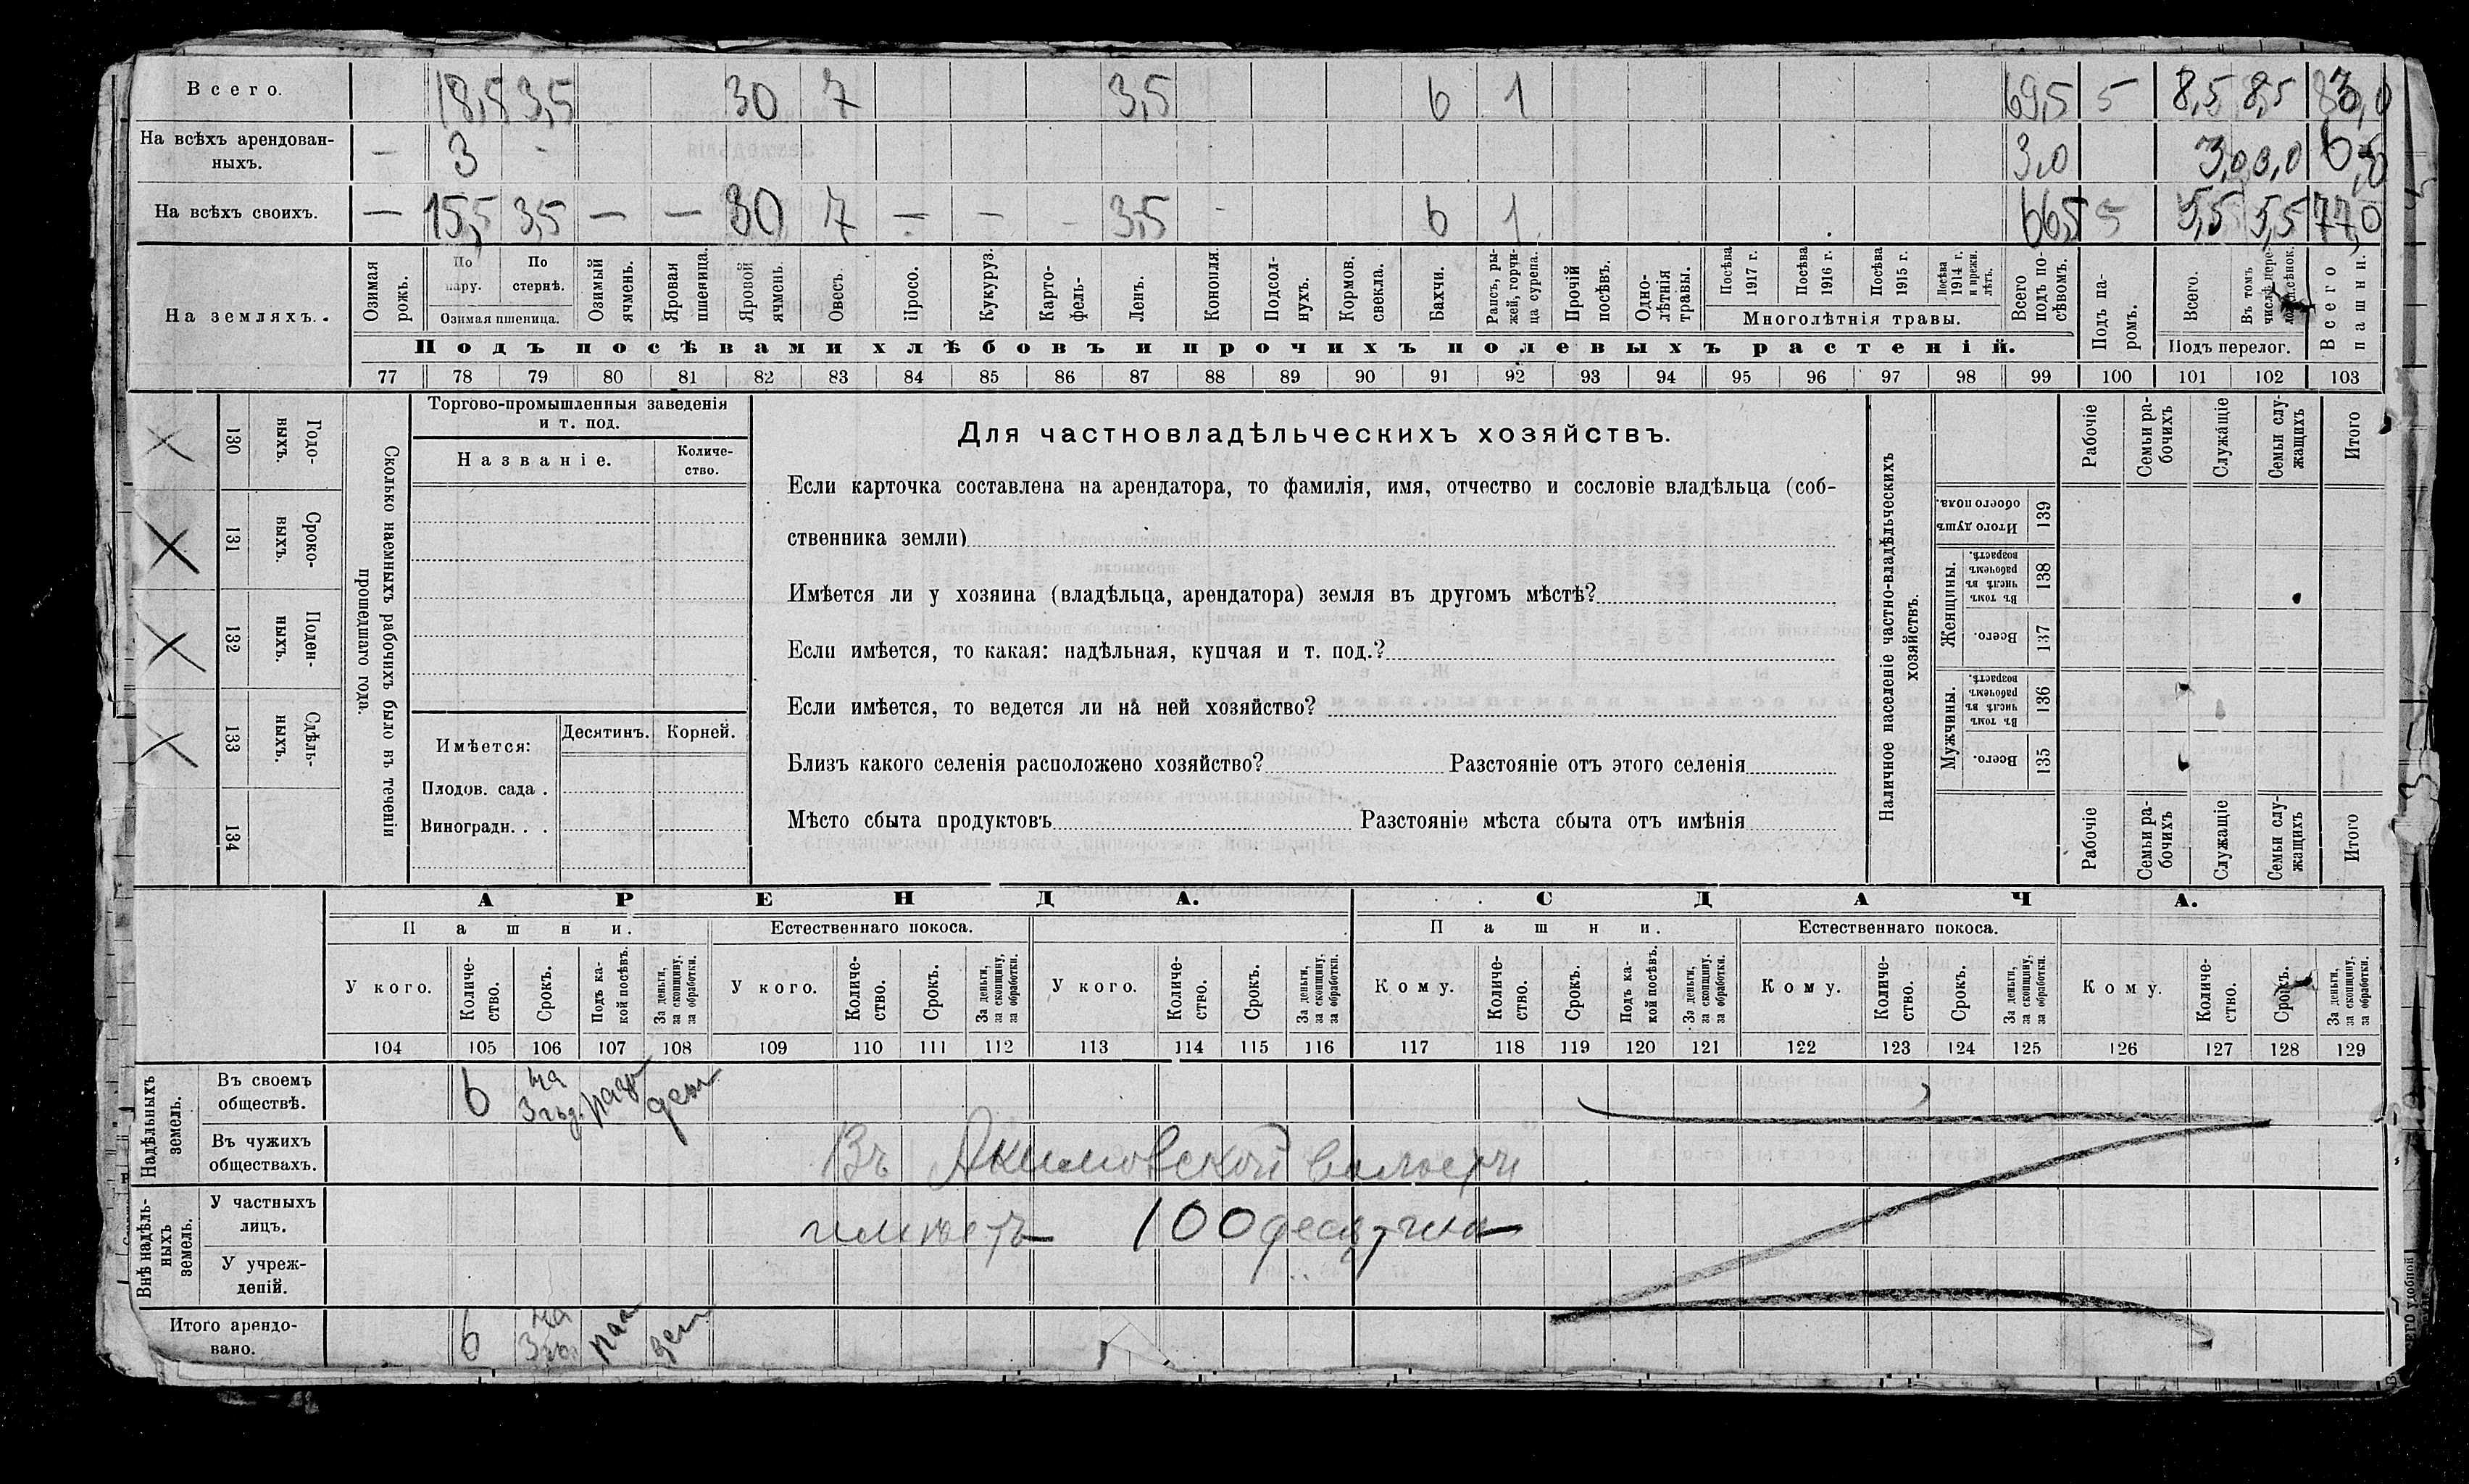 Всего. 18,5 3,5 30 7 3,5 6 1 69,5 5 8,5 8,5 83,0
На всѣхъ арендован-
ныхъ. — 3 - 3,0 3,0 3,0 6,0
На всѣхъ своихъ. — 15,5 3,5 — — 30 7 — - - 3,5 - 6 1 66,5 5 5,5 5,5 77,0
На земляхъ.
Озимая рожь.
По пару.
По стернѣ.
Озимая пшеница.
Озимый ячмень.
Яровая пшеница.
Яровой ячмень.
Овесъ.
Просо.
Кукуруз.
Карто-
фель.
Ленъ.
Конопля.
Подсол-
нухъ.
Кормов. свекла.
Бахчи.
Рапсъ, ры-
жей, горчи-
ца сурепа.
Прочій посѣвъ.
Одно-
лѣтнія травы.
Посѣва 1917 г.
Посѣва 1916 г.
Посѣва 1915 г.
Посѣва 1914 г. и прежн. лѣтъ.
Многолѣтнія травы.
Всего подъ по-
сѣвомъ.
Подъ па-
ромъ.
Всего.
Въ томъ числѣ
Подъ перелог.
Всего пашни.
Подъ посѣвами хлѣбовъ и прочихъ полевыхъ растеній.
77 78 79 80 81 82 83 84 85 86 87 88 89 90 91 92 93 94 95 96 97 98 99 100 101 102 103
Годо-
выхъ. 130
Сроко-
выхъ. 131
Поден-
ныхъ. 132
Сдѣль-
ныхъ. 133
134
Сколько наемныхъ рабочихъ было въ теченіи
прошедшаго года.
Торгово-промышленныя заведенія
и т. под.
Названіе. Количе-
ство.
Имѣется: Десятинъ. Корней.
Плодов. сада .
Виноградн. . .
Для частновладѣльческихъ хозяйствъ.
Если карточка составлена на арендатора, то фамилія, имя, отчество и сословіе владѣльца (соб-
ственника земли)
Имѣется ли у хозяина (владѣльца, арендатора) земля въ другомъ мѣстѣ?
Если имѣется, то какая: надѣльная, купчая и т. под.?
Если имѣется, то ведется ли на ней хозяйство?
Близъ какого селенія расположено хозяйство? Разстояніе отъ этого селенія
Мѣсто сбыта продуктовъ Разстояніе мѣста сбыта отъ имѣнія
Наличное населеніе частно-владѣльческихъ
хозяйствъ.
Рабочіе
Семьи ра-
бочихъ
Служащіе
Семьи слу-
жащихъ
Итого
Итого душъ обоего пола. 139
Женщины.
Въ томъ числѣ въ рабочемъ возрастѣ. 138
Всего. 137
Мужчины.
Въ томъ числѣ въ рабочемъ возрастѣ. 136
Всего. 135
Рабочіе
Семьи ра-
бочихъ
Служащіе
Семьи слу-
жащихъ
Итого
АРЕНДА. СДАЧА.
Пашни. Естественнаго покоса. Пашни. Естественнаго покоса.
У кого. Количе-
ство. Срокъ. Подъ ка-
кой посѣвъ. За деньги, за скопщину, за обработки.
У кого. Количе-
ство. Срокъ. За деньги, за скопщину, за обработки.
У кого. Количе-
ство. Срокъ. За деньги, за скопщину, за обработки.
Кому. Количе-
ство. Срокъ. Подъ ка-
кой посѣвъ. За деньги, за скопщину, за обработки.
Кому. Количе-
ство. Срокъ. За деньги, за скопщину, за обработки.
Кому. Количе-
ство. Срокъ. За деньги, за скопщину, за обработки.
104 105 106 107 108 109 110 111 112 113 114 115 116 117 118 119 120 121 122 123 124 125 126 127 128 129
Надѣльныхъ
земель.
Въ своемъ
обществѣ. 6 на 3 год. ден
Въ чужихъ
обществахъ.
Въ Акимовской волости
Внѣ надѣль-
ныхъ
земель.
У частныхъ
лицъ.
имѣетъ 100 десятин
У учреж-
деній.
Итого арендо-
вано. 6 на 3 ден